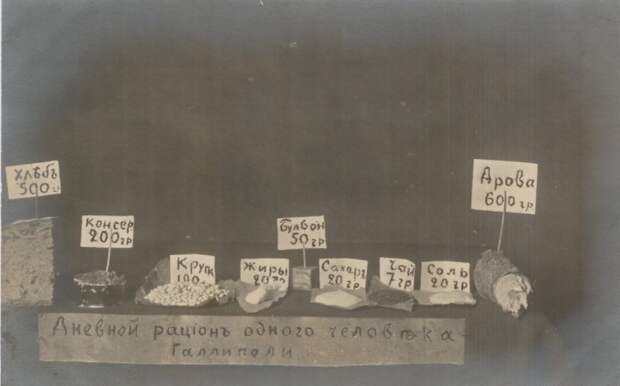 Хлѣбъ
500
Консер
200 гр
Крупа
100
Жиры
20 гр
Булвон
50 гр
Сахаръ
20 гр
Чай
7 гр
Соль
20 гр
Дрова
600 гр
Дневной раціонъ одного человѣка
Галлиполи